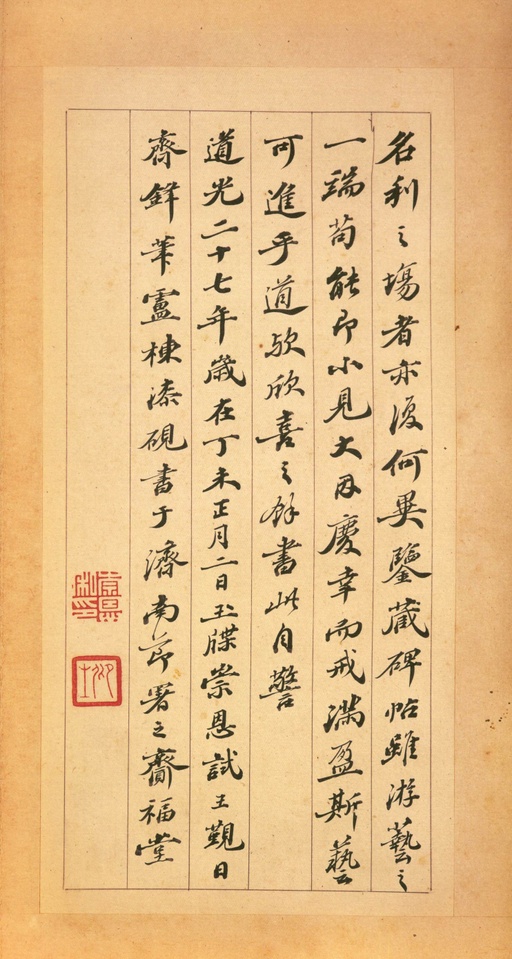 名利之塲者亦復何異鑒藏碑帖雖游藝之
一端苟能即小見大因慶幸而戒滿盈斯藝
可進乎道欤欣喜之餘書此自警
道光二十七年歲在丁未正月二日玉牒崇恩試王覲日
齋鋒筆盧棟漆硯書于濟南節署之齎福堂